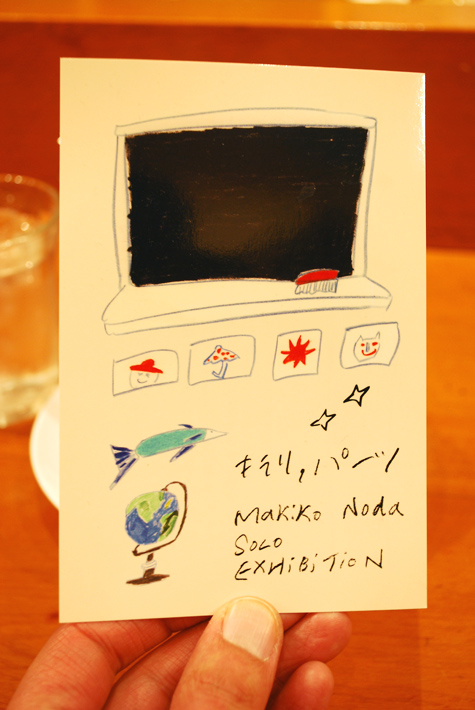 キラリ,パーツ
Makiko Noda
Solo
EXHiBiTioN